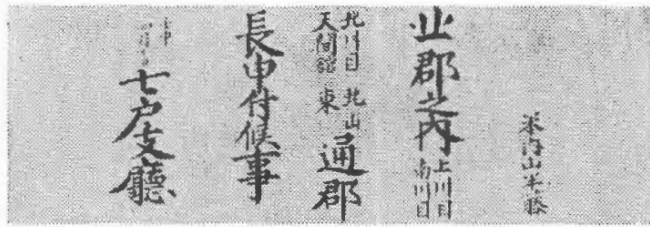 米内山
北郡之内
上川目
南川目
北川目 北山
天間舘 東
通郡
長申付候事
七戸支廳